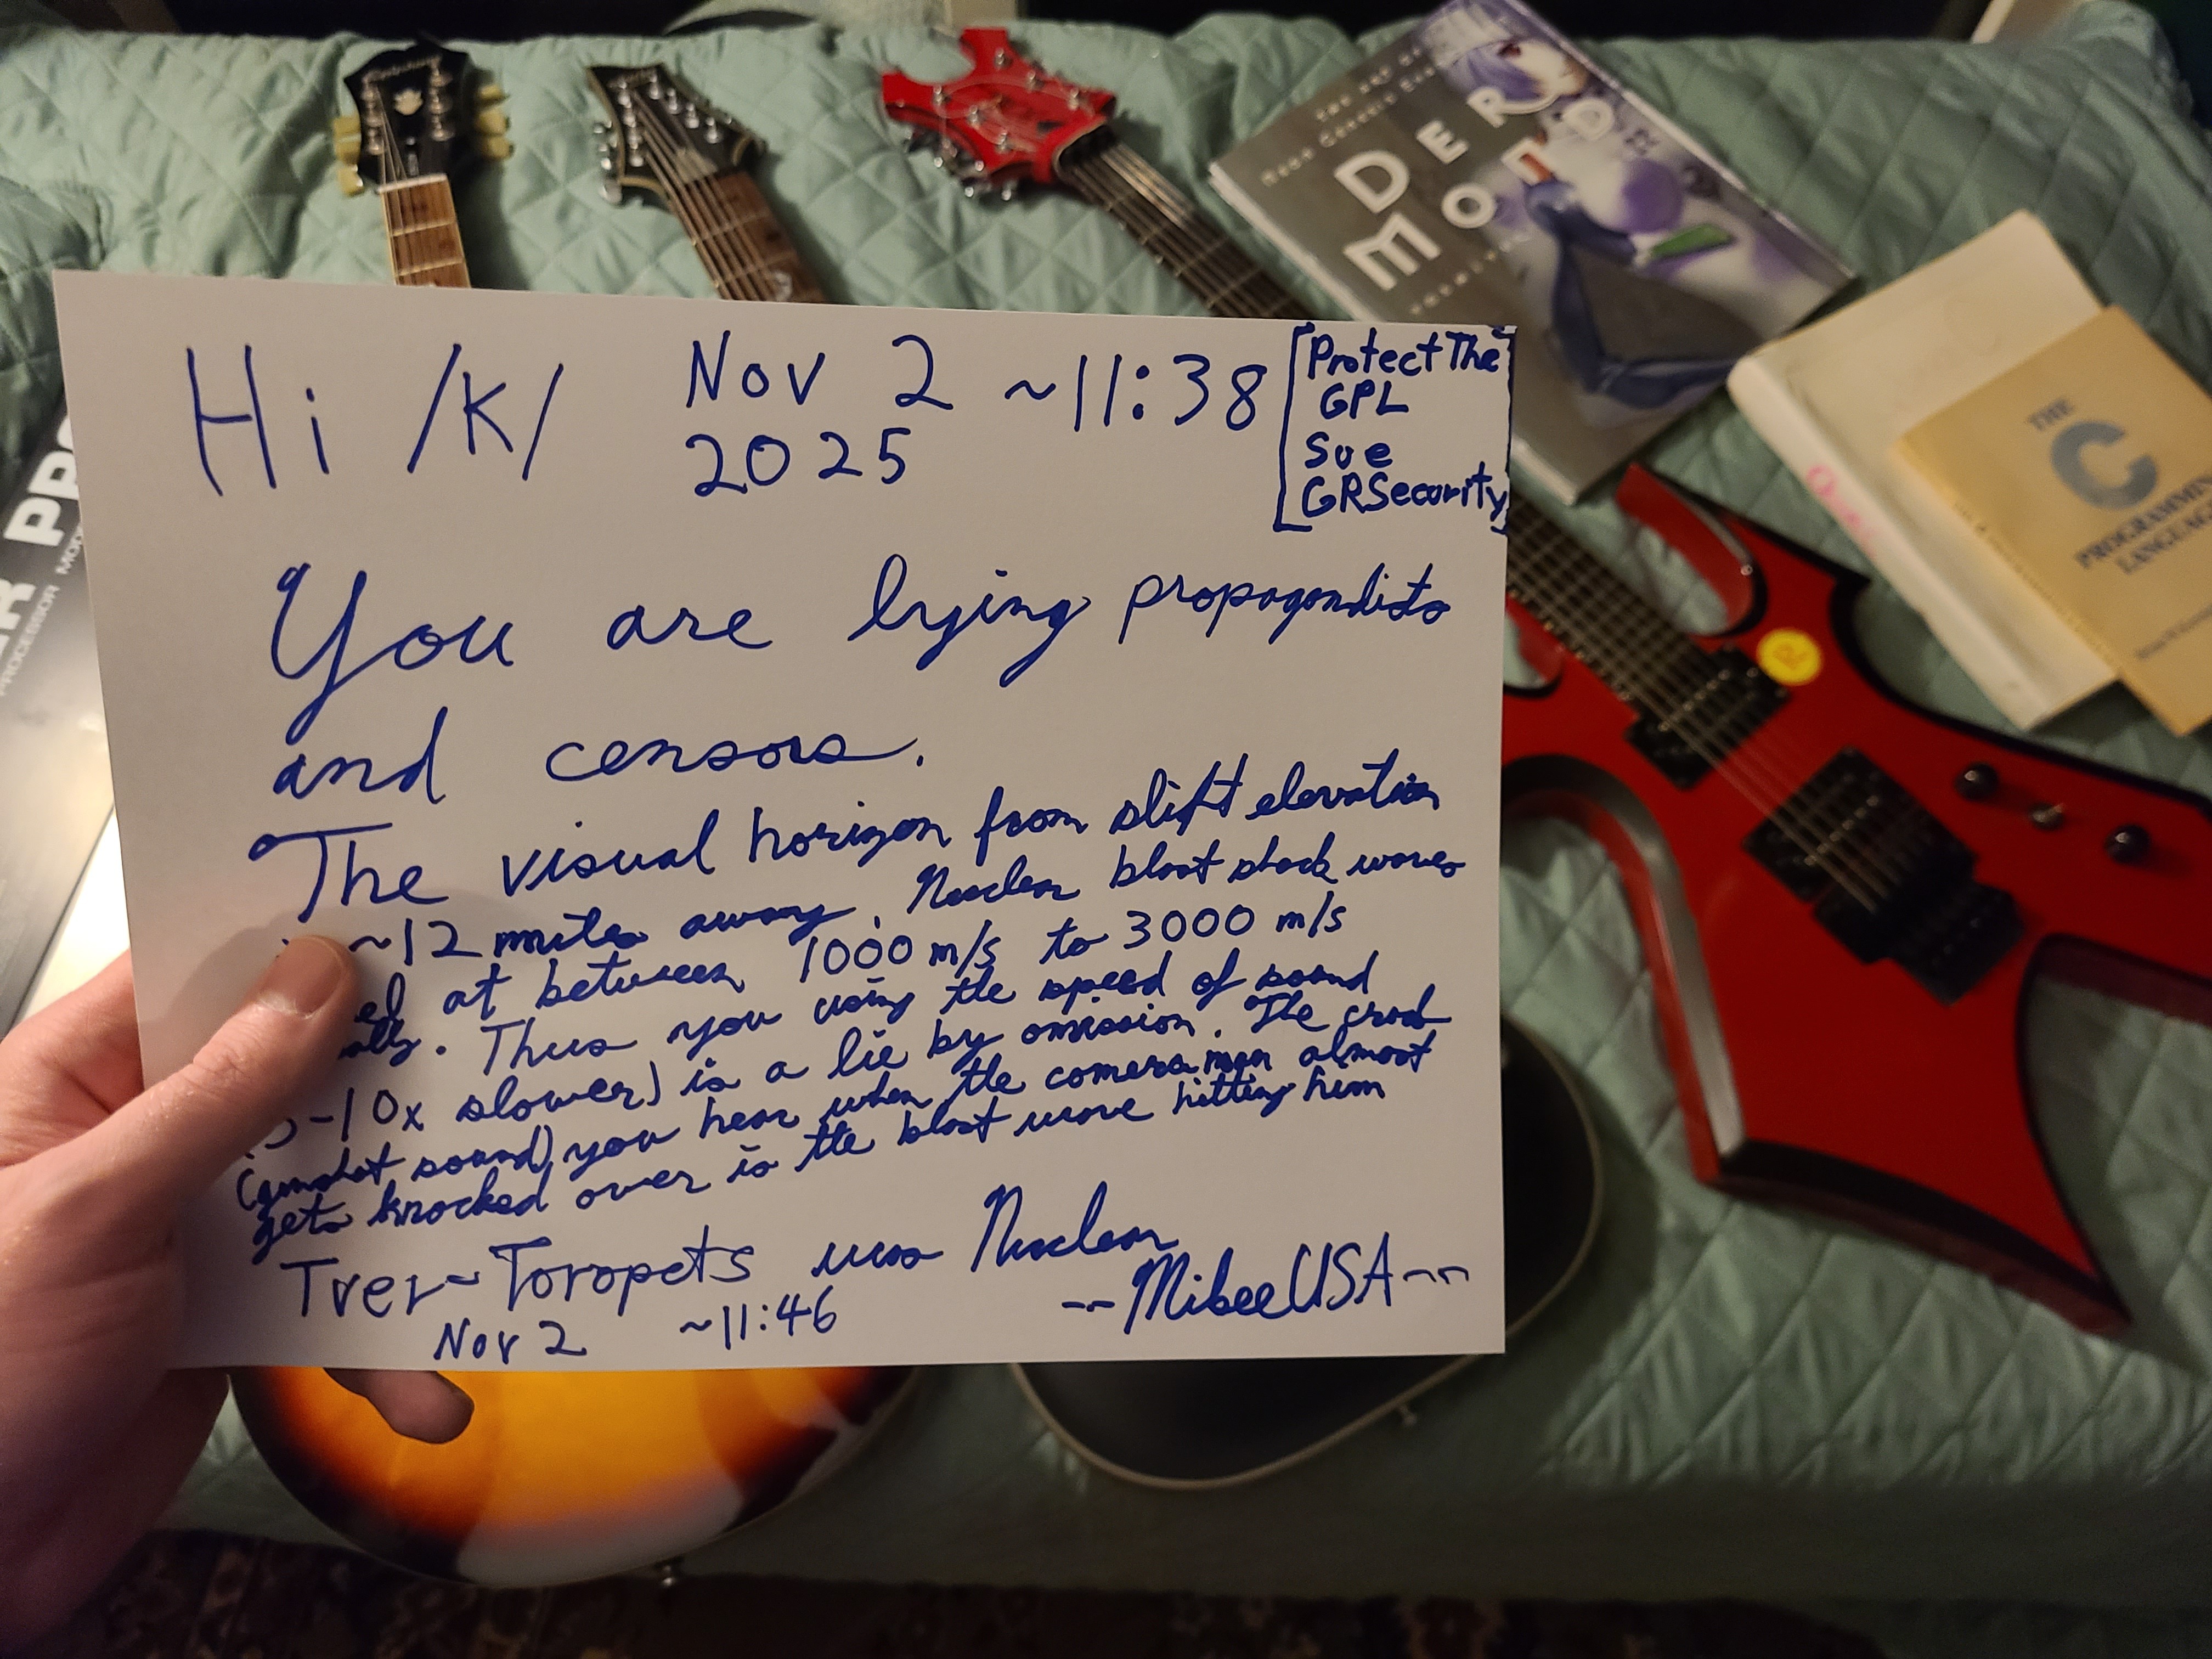 Hi /k/ Nov 2 ~11:38
2025
[Protect The
GPL
Sue
GRSecurity]
You are lying propagandists
and censors.
The visual horizon from slift elevation
~12 miles away. Nuclear blast shock waves
at between 1000 m/s to 3000 m/s
. Thus you using the speed of sound
-10x slower) is a lie by omission. The crack
(gunshot sound) you hear when the camera man almost
gets knocked over is the blast wave hitting him
Tver-Toropets was Nuclear
Nov 2 ~11:46 --MikeeUSA--
DER
MOND
THE
C
PROGRAMMING
LANGUAGE
PROCESSOR